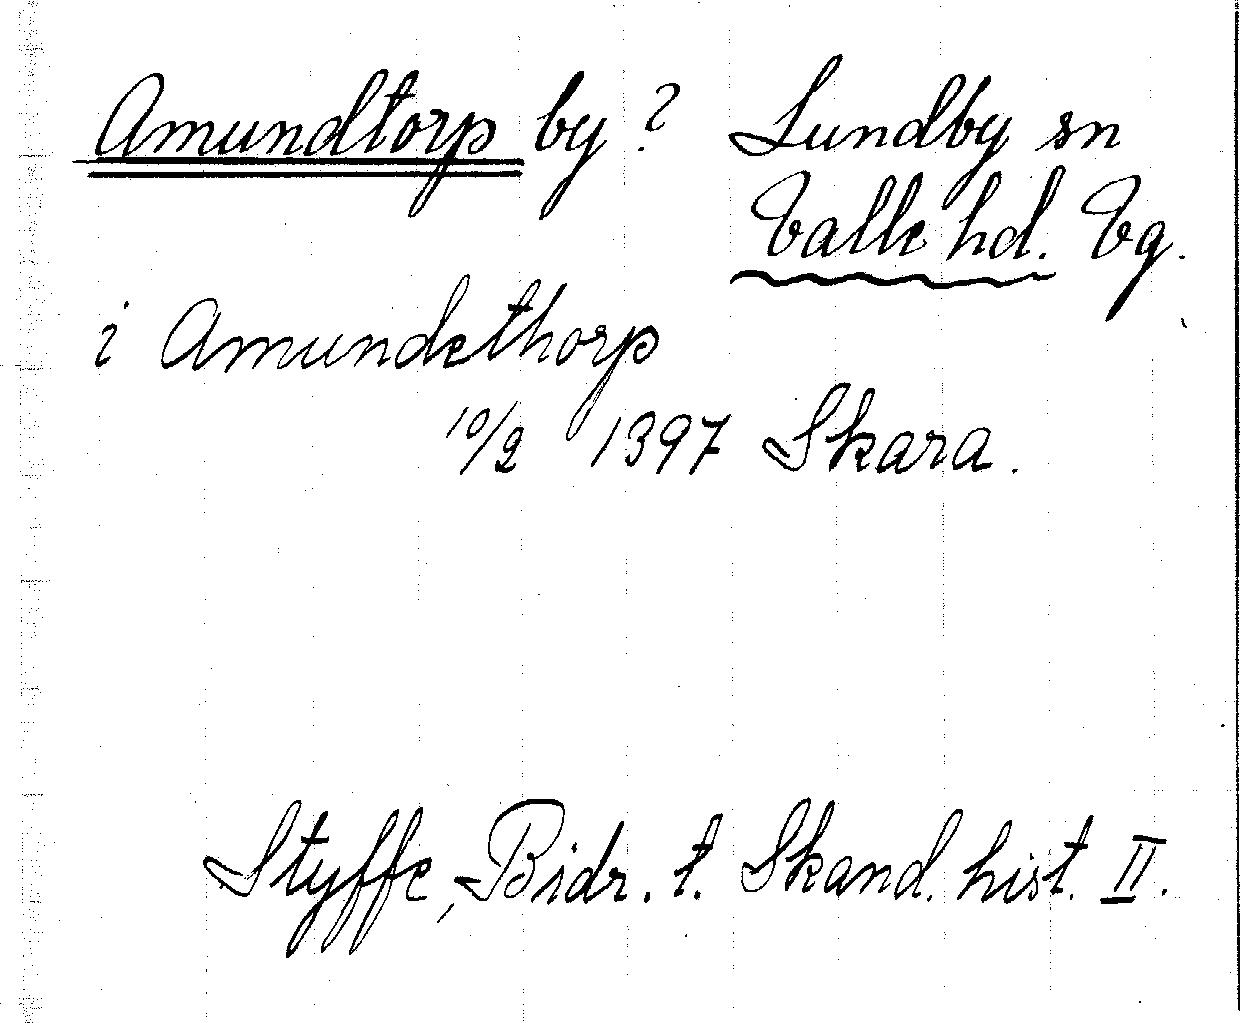 Amundtorp by ? Lundby sn
Valle hd. Vg.
i Amundethorp
10/2 1397 Skara.
Styffe, Bidr. t. Skand. hist. II.